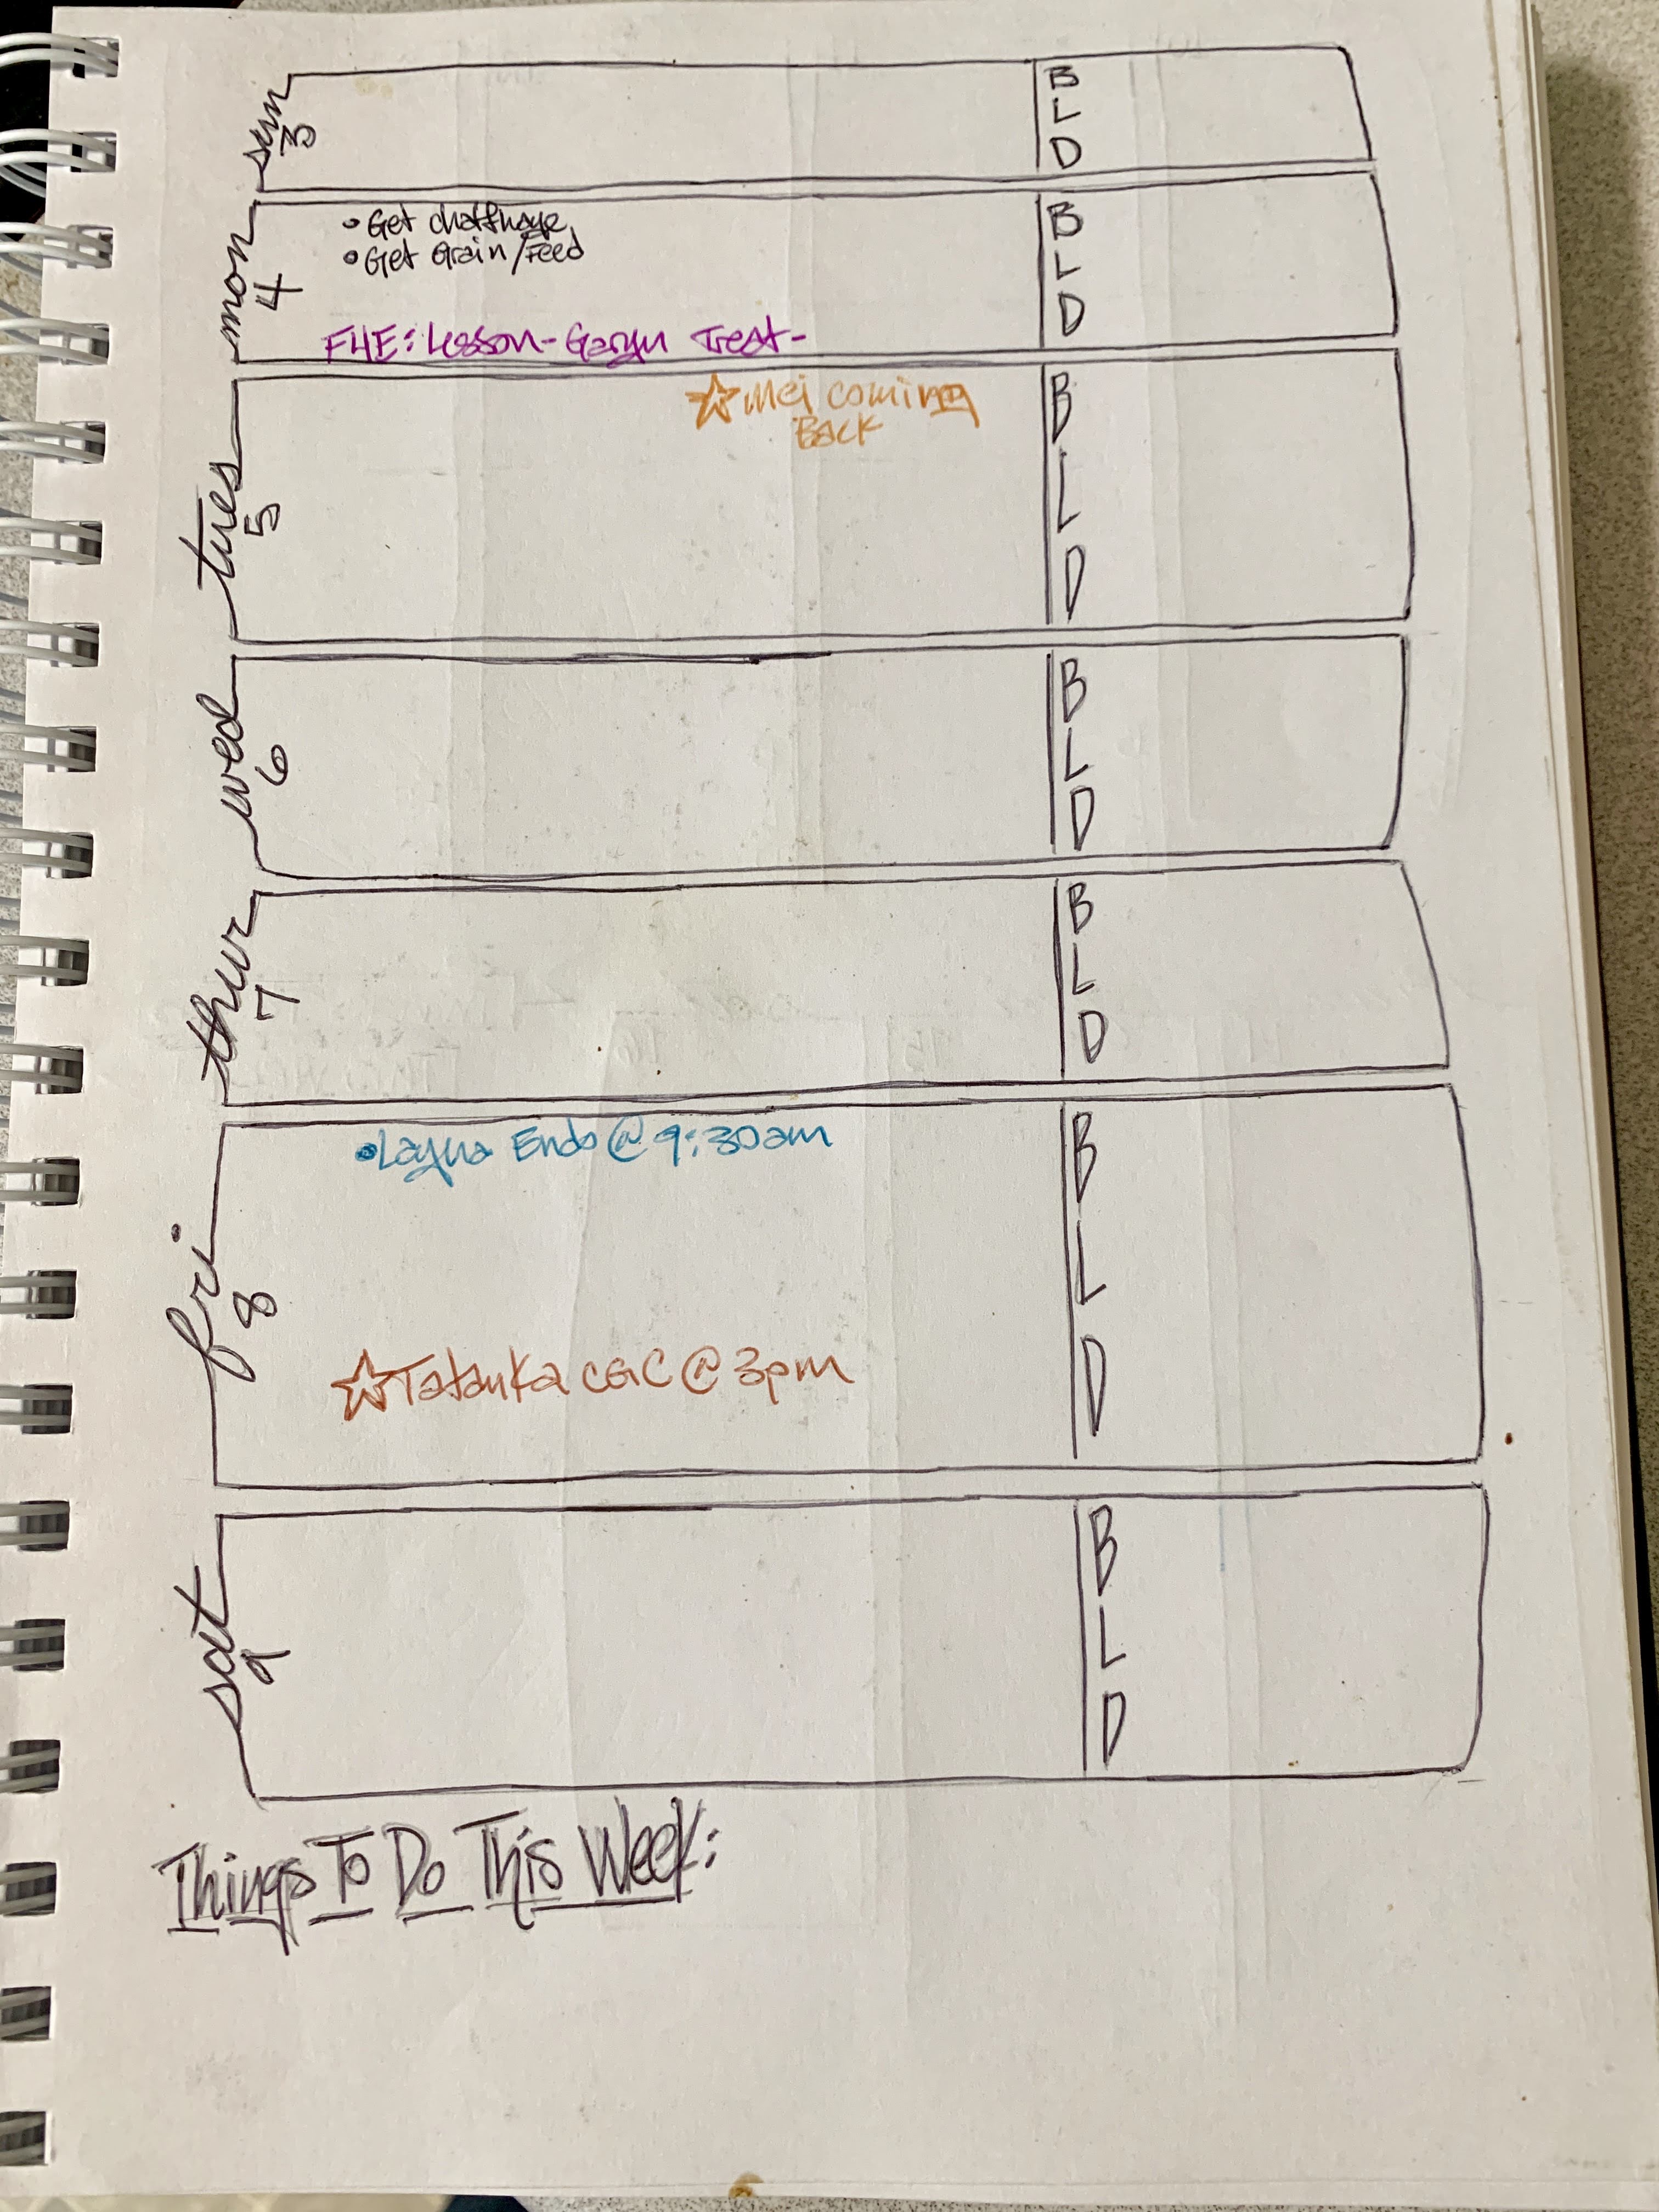 sun
3
B
L
D
mon
4
• Get chaffhaye
• Get Grain/Feed
FHE: Lesson- Garyn Treat-
B
L
D
tues
5
☆ Mei coming
Back
B
L
D
wed
6
B
L
D
thur
7
B
L
D
fri
8
• Layna Endo @ 9:30am
☆ Tatanka CGC @ 3pm
B
L
D
sat
9
B
L
D
Things To Do This Week: